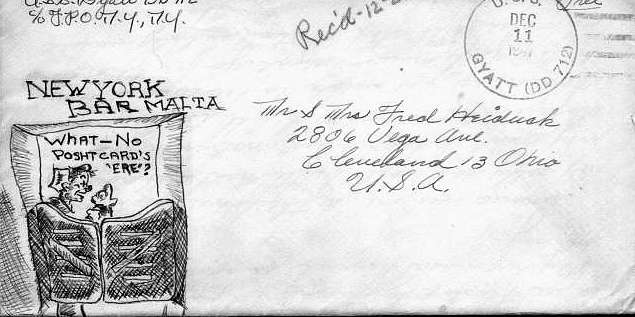 U.S.S. Gyatt DD 712
c/o F.P.O. N.Y., N.Y.
Rec'd-12-2
U.S.S.
DEC
11
GYATT (DD 712)
Free
NEW YORK
BAR MALTA
WHAT-NO
POSHTCARD'S
'ERE"?
Mr & Mrs Fred Heiduck
2806 Vega Ave.
Cleveland 13 Ohio
U.S.A.